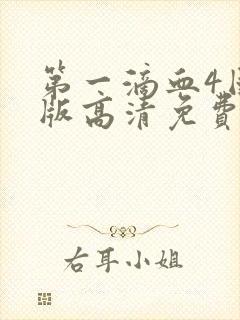 第一滴血4
版高清免费
右耳小姐